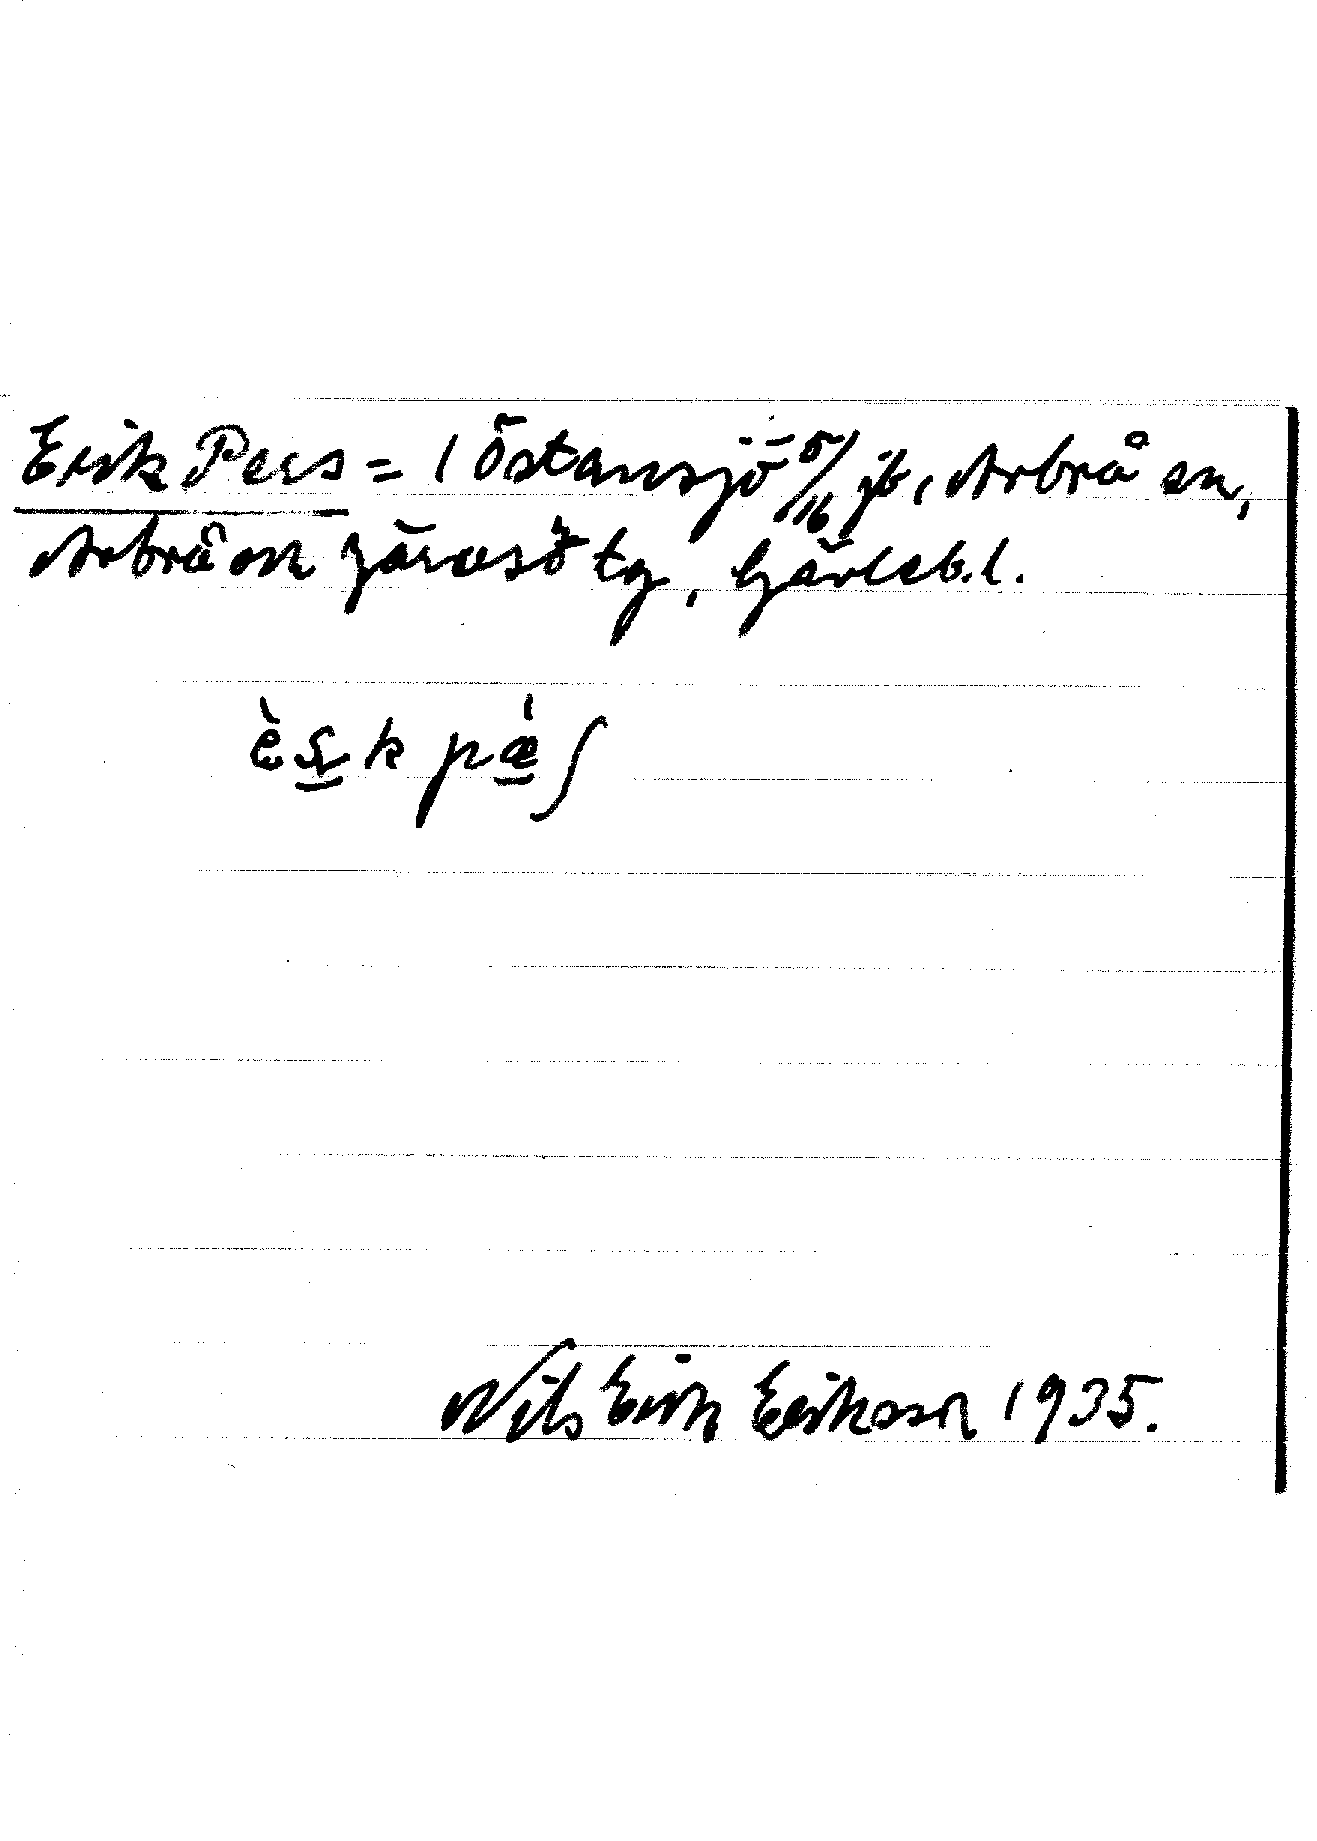 Erik Pers = 1 Östansjö 5/16 jb, Arbrå sn,
Arbrå ok Järvsö tg, Gävleb. l.
Nils Erik Eriksson 1935.